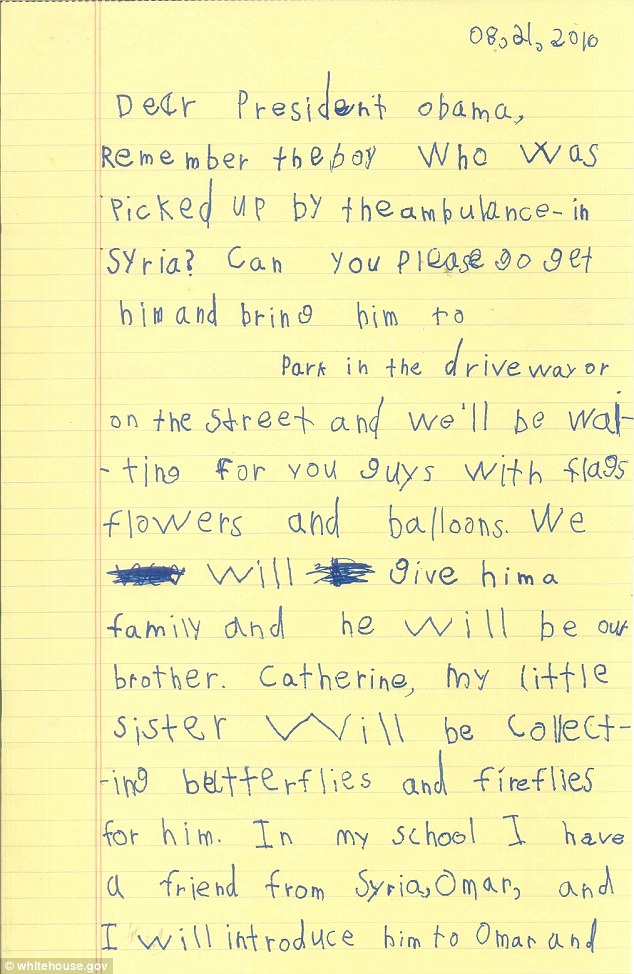 08, 21, 2010
Dear President obama,
Remember the boy who was
picked up by the ambulance-in
Syria? Can you please go get
him and bring him to
Park in the driveway or
on the street and we'll be wai-
-ting for you guys with flags
flowers and balloons. We
will give him a
family and he will be our
brother. Catherine, my little
sister will be collect-
-ing butterflies and fireflies
for him. In my school I have
a friend from Syria, Omar, and
I will introduce him to Omar and
© whitehouse.gov